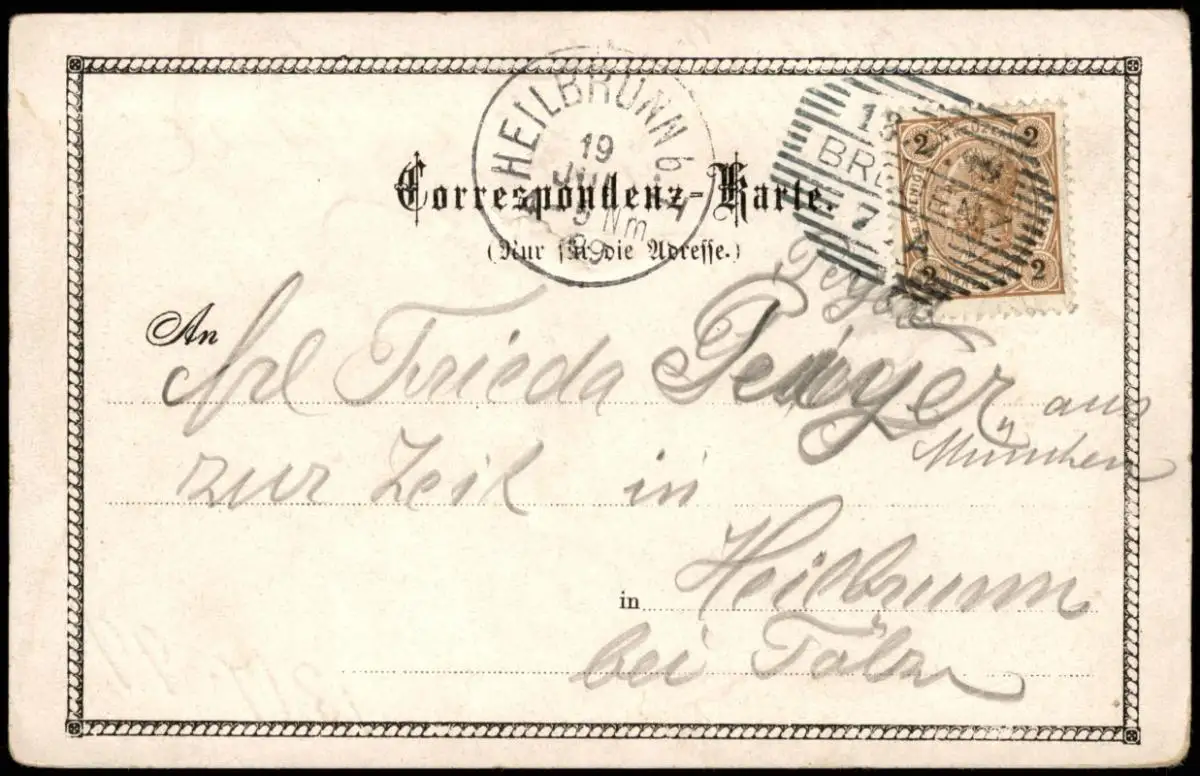 HEILBRUNN b.
19
JUL
5 Nm
99
18
BRE
7
2 2
2 2
Correspondenz-Karte.
(Nur für die Adresse.)
An
frl Frieda Geiger aus
München
zur Zeit in
in Heilbrunn
bei Tölz